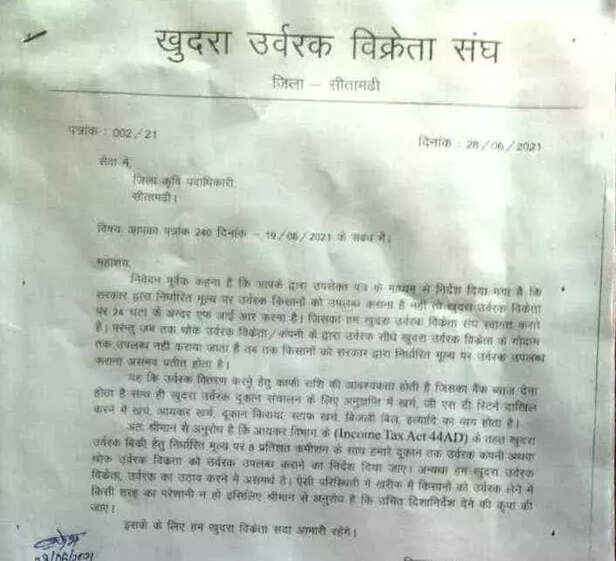 खुदरा उर्वरक विक्रेता संघ
जिला – सीतामढी
पत्रांक : 002/21
दिनांक : 28/06/2021
सेवा में,
जिला कृषि पदाधिकारी,
सीतामढी।
विषय: आपका पत्रांक 240 दिनांक – 19/06/2021 के संबंध में।
महाशय,
निवेदन पूर्वक कहना है कि आपके द्वारा उपरोक्त पत्र के माध्यम से निर्देश दिया गया है कि
सरकार द्वारा निर्धारित मूल्य पर उर्वरक किसानों को उपलब्ध कराना है नहीं तो खुदरा उर्वरक विक्रेता
पर 24 घंटा के अन्दर एफ आई आर करना है। जिसका हम खुदरा उर्वरक विक्रेता संघ स्वागत करते
है। परन्तु जब तक थोक उर्वरक विक्रेता/कंपनी के द्वारा सीधे खुदरा उर्वरक विक्रेता के गोदाम
तक उपलब्ध नहीं कराया जाता है तब तक किसानों को सरकार द्वारा निर्धारित मूल्य पर उर्वरक उपलब्ध
कराना असंभव प्रतीत होता है।
यह कि उर्वरक वितरण करने हेतु काफी राशि की आवश्यकता होती है जिसका बैंक ब्याज देना
होता है साथ ही खुदरा उर्वरक दूकान संचालन के लिए अनुज्ञप्ति में खर्च, जी एस टी रिटर्न दाखिल
करने में खर्च, आयकर खर्च, दूकान किराया, स्टाफ खर्च, बिजली बिल, इत्यादि का व्यय होता है।
अतः श्रीमान से अनुरोध है कि आयकर विभाग के (Income Tax Act 44AD) के तहत खुदरा
उर्वरक बिक्री हेतु निर्धारित मूल्य पर 8 प्रतिशत कमीशन के साथ हमारे दूकान तक उर्वरक कंपनी अथवा
थोक उर्वरक विक्रेता को उर्वरक उपलब्ध कराने का निर्देश दिया जाए। अन्यथा हम खुदरा उर्वरक
विक्रेता, उर्वरक का उठाव करने में असमर्थ है। ऐसी परिस्थिती में खरीफ में किसानों को उर्वरक लेने में
किसी तरह का परेशानी न हो इसिलिए श्रीमान से अनुरोध है कि उचित दिशानिर्देश देने की कृपा की
जाए।
इसके के लिए हम खुदरा विक्रेता सदा आभारी रहेंगे।